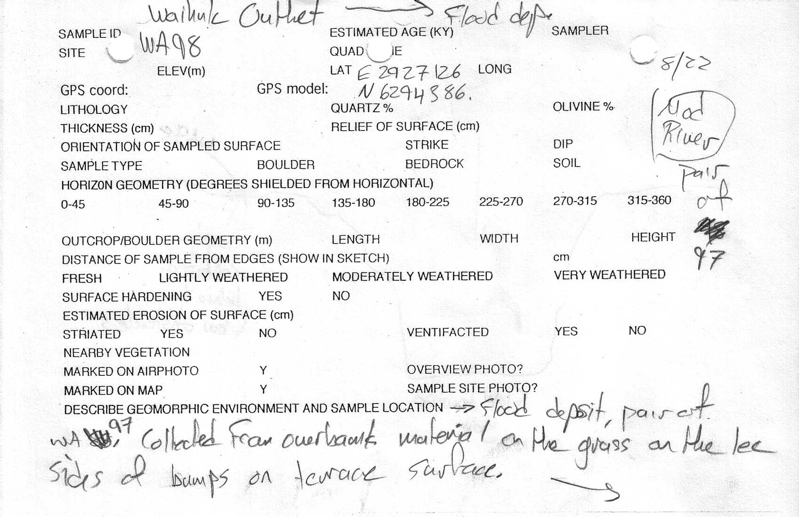 Waihuk Outlet → Flood depo
SAMPLE ID WA98 ESTIMATED AGE (KY) SAMPLER
SITE QUAD E
ELEV(m) LAT E 2927126 LONG 8/22
GPS coord: GPS model: N 6294386.
LITHOLOGY QUARTZ % OLIVINE % Mod
THICKNESS (cm) RELIEF OF SURFACE (cm) River
ORIENTATION OF SAMPLED SURFACE STRIKE DIP
SAMPLE TYPE BOULDER BEDROCK SOIL pair
HORIZON GEOMETRY (DEGREES SHIELDED FROM HORIZONTAL)
0-45 45-90 90-135 135-180 180-225 225-270 270-315 315-360 of
OUTCROP/BOULDER GEOMETRY (m) LENGTH WIDTH HEIGHT
DISTANCE OF SAMPLE FROM EDGES (SHOW IN SKETCH) cm 97
FRESH LIGHTLY WEATHERED MODERATELY WEATHERED VERY WEATHERED
SURFACE HARDENING YES NO
ESTIMATED EROSION OF SURFACE (cm)
STRIATED YES NO VENTIFACTED YES NO
NEARBY VEGETATION
MARKED ON AIRPHOTO Y OVERVIEW PHOTO?
MARKED ON MAP Y SAMPLE SITE PHOTO?
DESCRIBE GEOMORPHIC ENVIRONMENT AND SAMPLE LOCATION → Flood deposit, pair of
WA 97, Collected from overbank material on the grass on the lee
sides of bumps on terrace surface. →